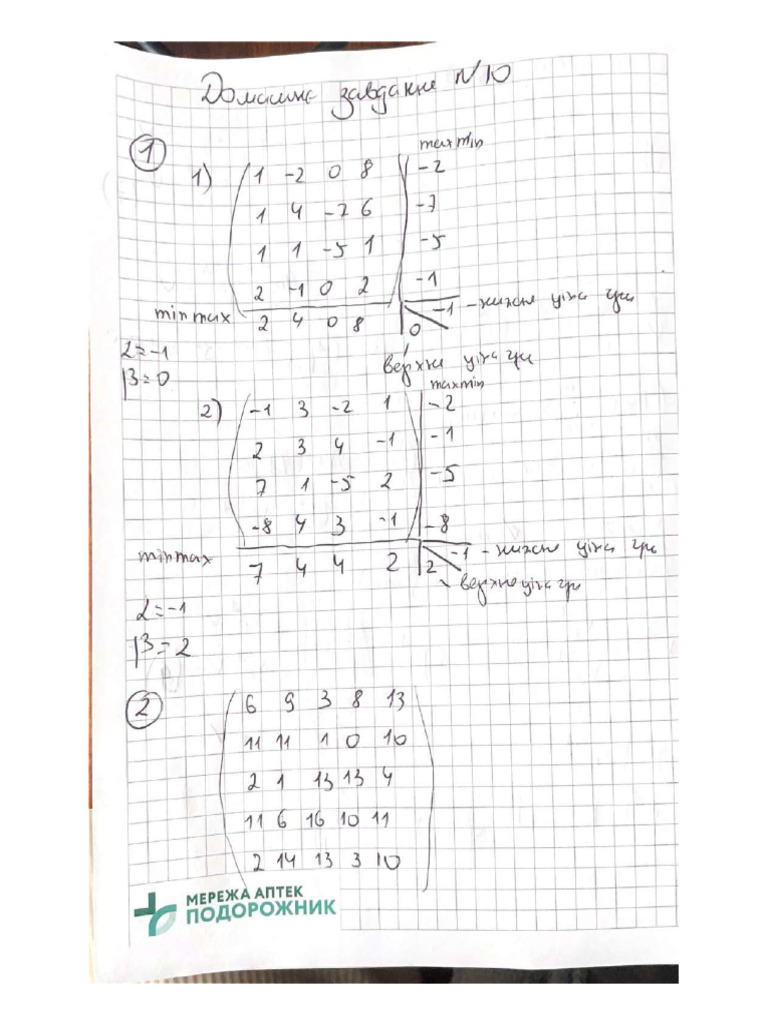 Домашнє завдання №10
① maxmin
1) 1 -2 0 8 | -2
1 4 -2 6 | -7
1 1 -5 1 | -5
2 -1 0 2 | -1
minmax 2 4 0 8 | 0 \ -1 - нижня ціна гри
верхня ціна гри
α = -1
β = 0
maxmin
2) -1 3 -2 1 | -2
2 3 4 -1 | -1
7 1 -5 2 | -5
-8 4 3 -1 | -8
minmax 7 4 4 2 | 2 \ -1 - нижня ціна гри
верхня ціна гри
α = -1
β = 2
② 6 9 3 8 13
11 11 1 0 10
2 1 13 13 4
11 6 16 10 11
2 14 13 3 10
МЕРЕЖА АПТЕК
ПОДОРОЖНИК